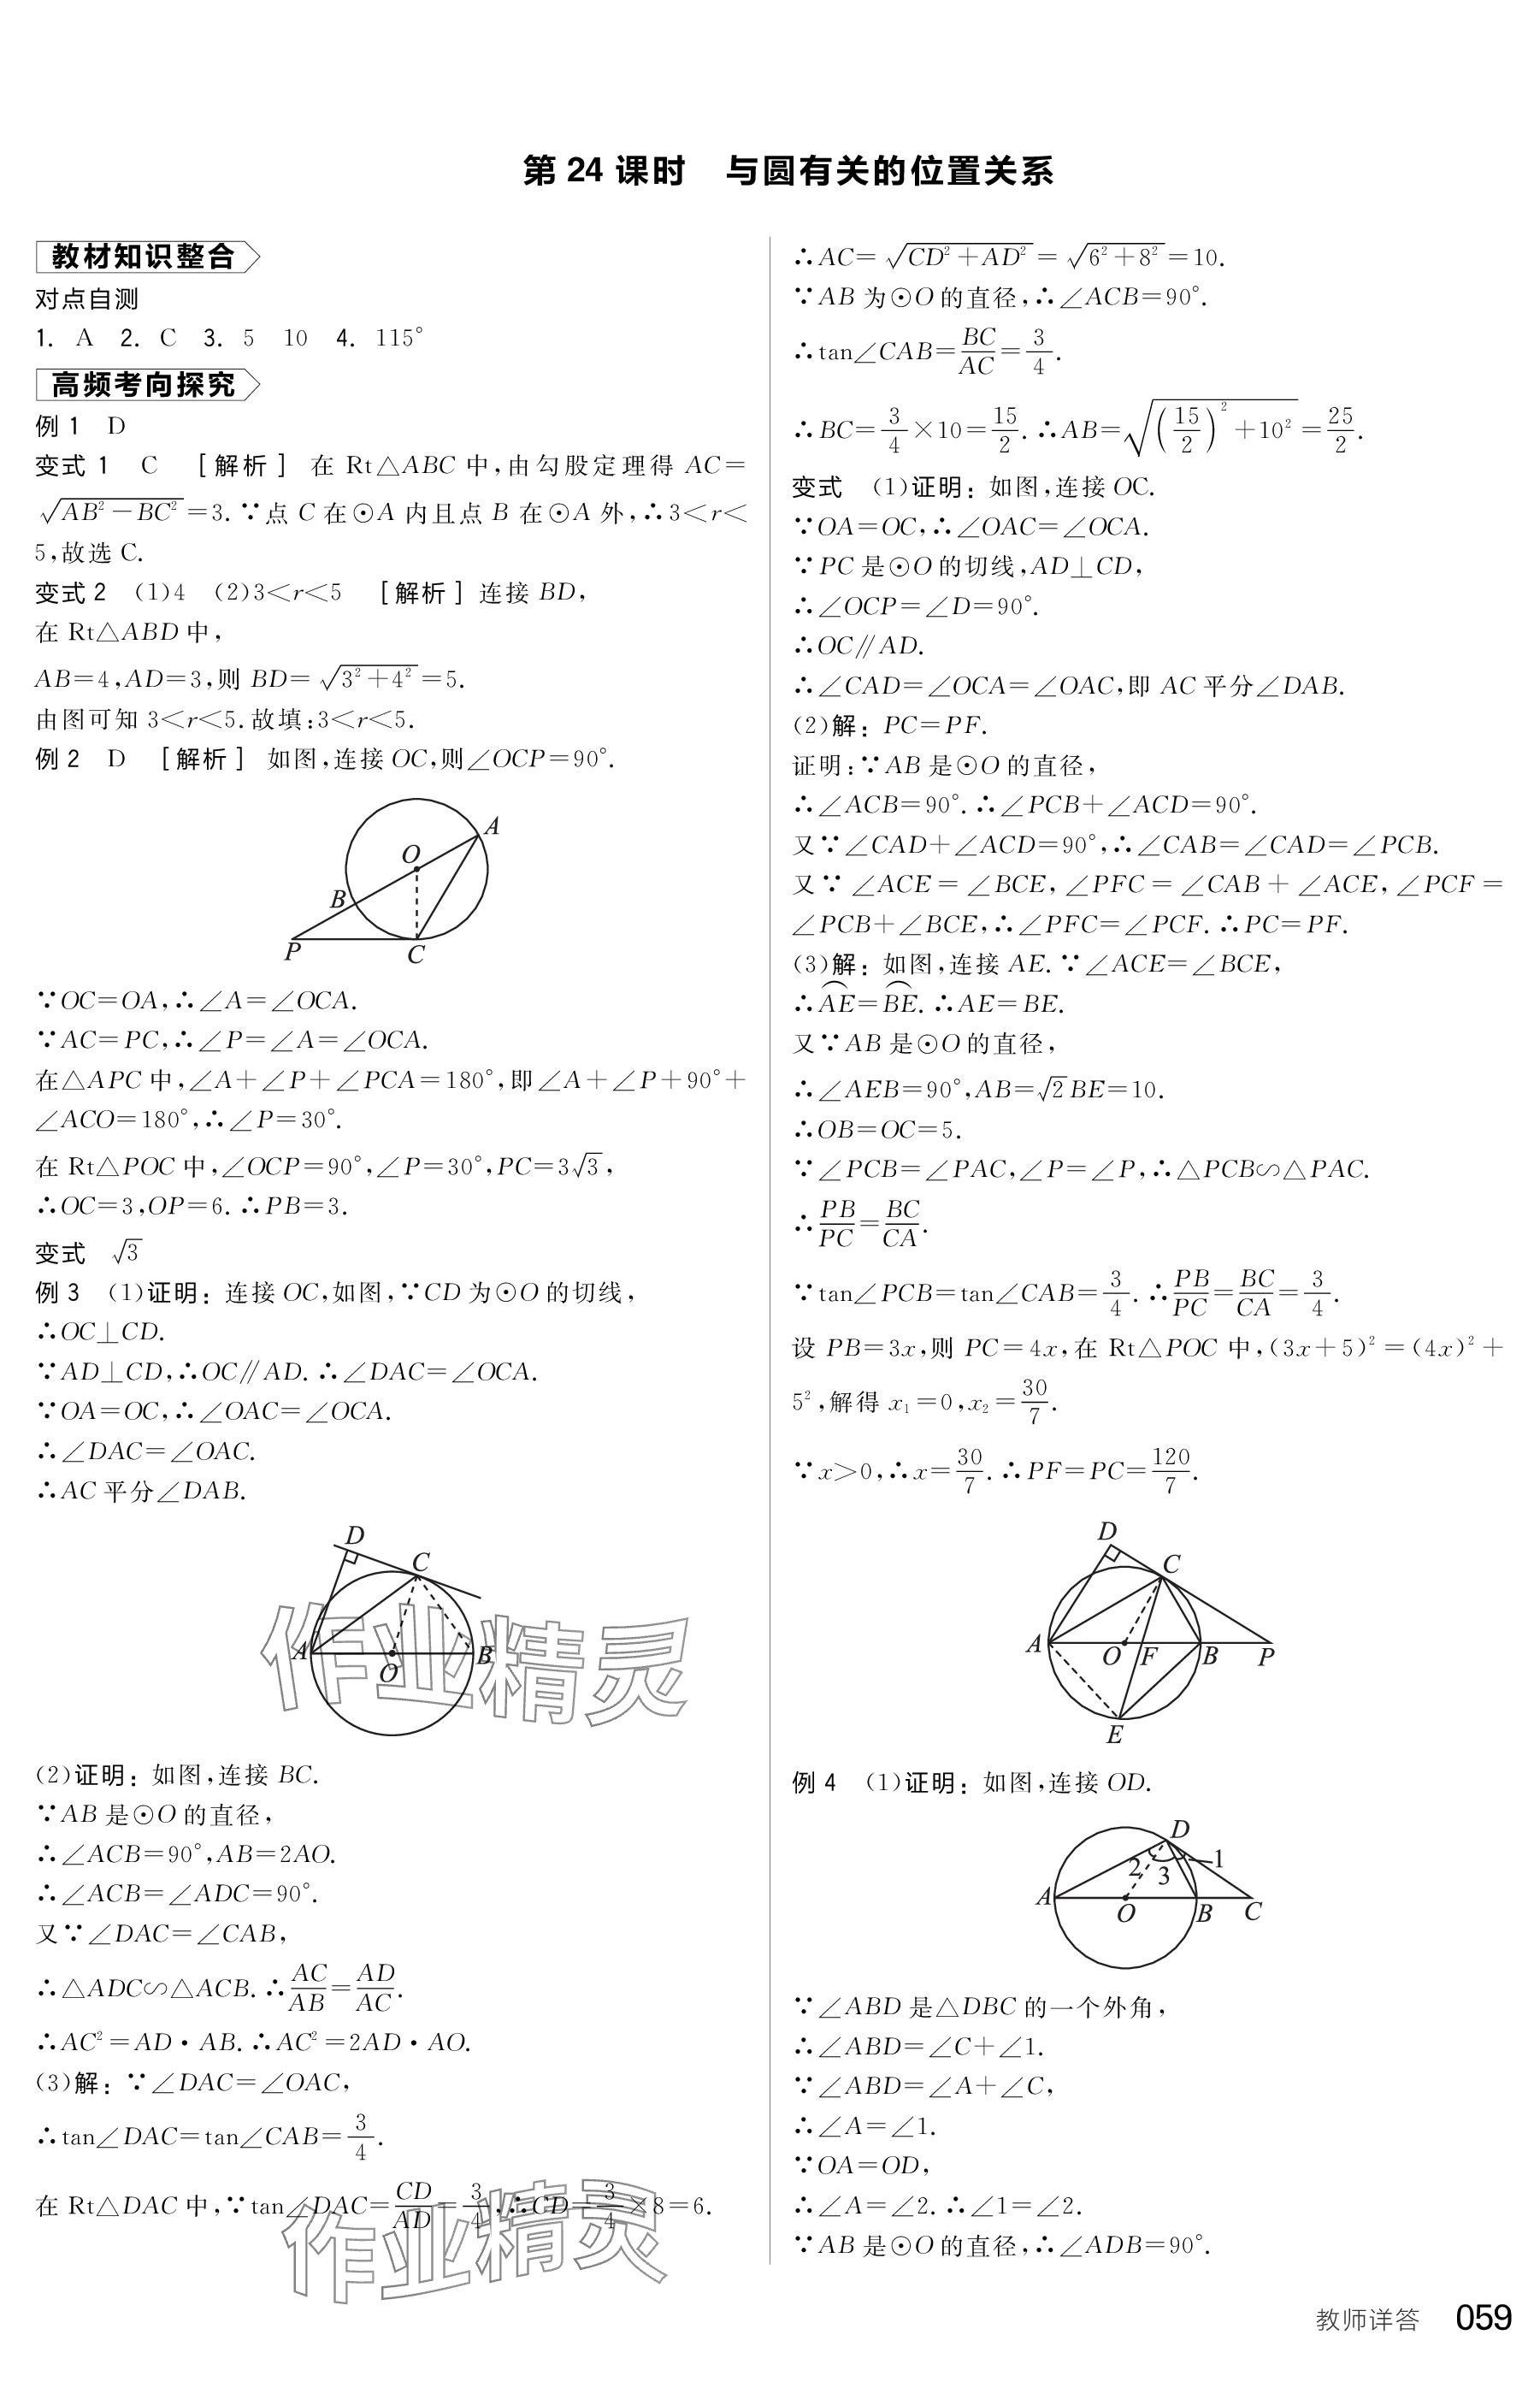 第 24 课时　与圆有关的位置关系
教材知识整合
对点自测
1. A　2. C　3. 5　10　4. 115°
高频考向探究
例 1　D
变式 1　C　［解析］ 在 Rt△ABC 中,由勾股定理得 AC=
√(AB²-BC²)=3. ∵点 C 在⊙A 内且点 B 在⊙A 外,∴3<r<
5,故选 C.
变式 2　(1)4　(2)3<r<5　［解析］连接 BD,
在 Rt△ABD 中,
AB=4,AD=3,则 BD=√(3²+4²)=5.
由图可知 3<r<5. 故填:3<r<5.
例 2　D　［解析］ 如图,连接 OC,则∠OCP=90°.
A
O
B
P
C
∵OC=OA,∴∠A=∠OCA.
∵AC=PC,∴∠P=∠A=∠OCA.
在△APC 中,∠A+∠P+∠PCA=180°,即∠A+∠P+90°+
∠ACO=180°,∴∠P=30°.
在 Rt△POC 中,∠OCP=90°,∠P=30°,PC=3√3,
∴OC=3,OP=6. ∴PB=3.
变式　√3
例 3　(1)证明: 连接 OC,如图,∵CD 为⊙O 的切线,
∴OC⊥CD.
∵AD⊥CD,∴OC∥AD. ∴∠DAC=∠OCA.
∵OA=OC,∴∠OAC=∠OCA.
∴∠DAC=∠OAC.
∴AC 平分∠DAB.
D
C
A
O
B
作业精灵
(2)证明: 如图,连接 BC.
∵AB 是⊙O 的直径,
∴∠ACB=90°,AB=2AO.
∴∠ACB=∠ADC=90°.
又∵∠DAC=∠CAB,
∴△ADC∽△ACB. ∴AC/AB=AD/AC.
∴AC²=AD·AB. ∴AC²=2AD·AO.
(3)解: ∵∠DAC=∠OAC,
∴tan∠DAC=tan∠CAB=3/4.
在 Rt△DAC 中,∵tan∠DAC=CD/AD=3/4,∴CD=3/4×8=6.
作业精灵
∴AC=√(CD²+AD²)=√(6²+8²)=10.
∵AB 为⊙O 的直径,∴∠ACB=90°.
∴tan∠CAB=BC/AC=3/4.
∴BC=3/4×10=15/2. ∴AB=√((15/2)²+10²)=25/2.
变式　(1)证明: 如图,连接 OC.
∵OA=OC,∴∠OAC=∠OCA.
∵PC 是⊙O 的切线,AD⊥CD,
∴∠OCP=∠D=90°.
∴OC∥AD.
∴∠CAD=∠OCA=∠OAC,即 AC 平分∠DAB.
(2)解: PC=PF.
证明:∵AB 是⊙O 的直径,
∴∠ACB=90°. ∴∠PCB+∠ACD=90°.
又∵∠CAD+∠ACD=90°,∴∠CAB=∠CAD=∠PCB.
又∵ ∠ACE=∠BCE, ∠PFC=∠CAB+∠ACE, ∠PCF=
∠PCB+∠BCE,∴∠PFC=∠PCF. ∴PC=PF.
(3)解: 如图,连接 AE. ∵∠ACE=∠BCE,
∴⌒AE=⌒BE. ∴AE=BE.
又∵AB 是⊙O 的直径,
∴∠AEB=90°,AB=√2BE=10.
∴OB=OC=5.
∵∠PCB=∠PAC,∠P=∠P,∴△PCB∽△PAC.
∴PB/PC=BC/CA.
∵tan∠PCB=tan∠CAB=3/4. ∴PB/PC=BC/CA=3/4.
设 PB=3x,则 PC=4x,在 Rt△POC 中,(3x+5)²=(4x)²+
5²,解得 x₁=0,x₂=30/7.
∵x>0,∴x=30/7. ∴PF=PC=120/7.
D
C
A
O
F
B
P
E
例 4　(1)证明: 如图,连接 OD.
D
2
3
1
A
O
B
C
∵∠ABD 是△DBC 的一个外角,
∴∠ABD=∠C+∠1.
∵∠ABD=∠A+∠C,
∴∠A=∠1.
∵OA=OD,
∴∠A=∠2. ∴∠1=∠2.
∵AB 是⊙O 的直径,∴∠ADB=90°.
教师详答　059